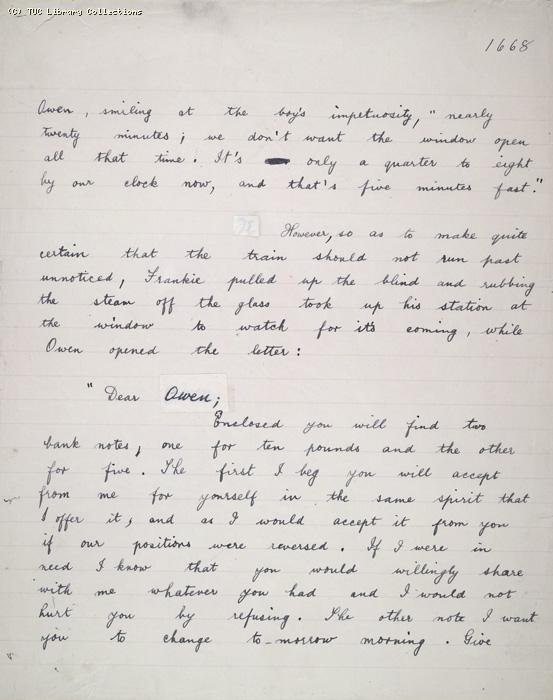 (C) TUC Library Collections
1668
Owen, smiling at the boy's impetuosity, "nearly
twenty minutes; we don't want the window open
all that time. It's only a quarter to eight
by our clock now, and that's five minutes fast."
However, so as to make quite
certain that the train should not run past
unnoticed, Frankie pulled up the blind and rubbing
the steam off the glass took up his station at
the window to watch for it's coming, while
Owen opened the letter:
"Dear Owen;
Enclosed you will find two
bank notes, one for ten pounds and the other
for five. The first I beg you will accept
from me for yourself in the same spirit that
I offer it, and as I would accept it from you
if our positions were reversed. If I were in
need I know that you would willingly share
with me whatever you had and I would not
hurt you by refusing. The other note I want
you to change to-morrow morning. Give